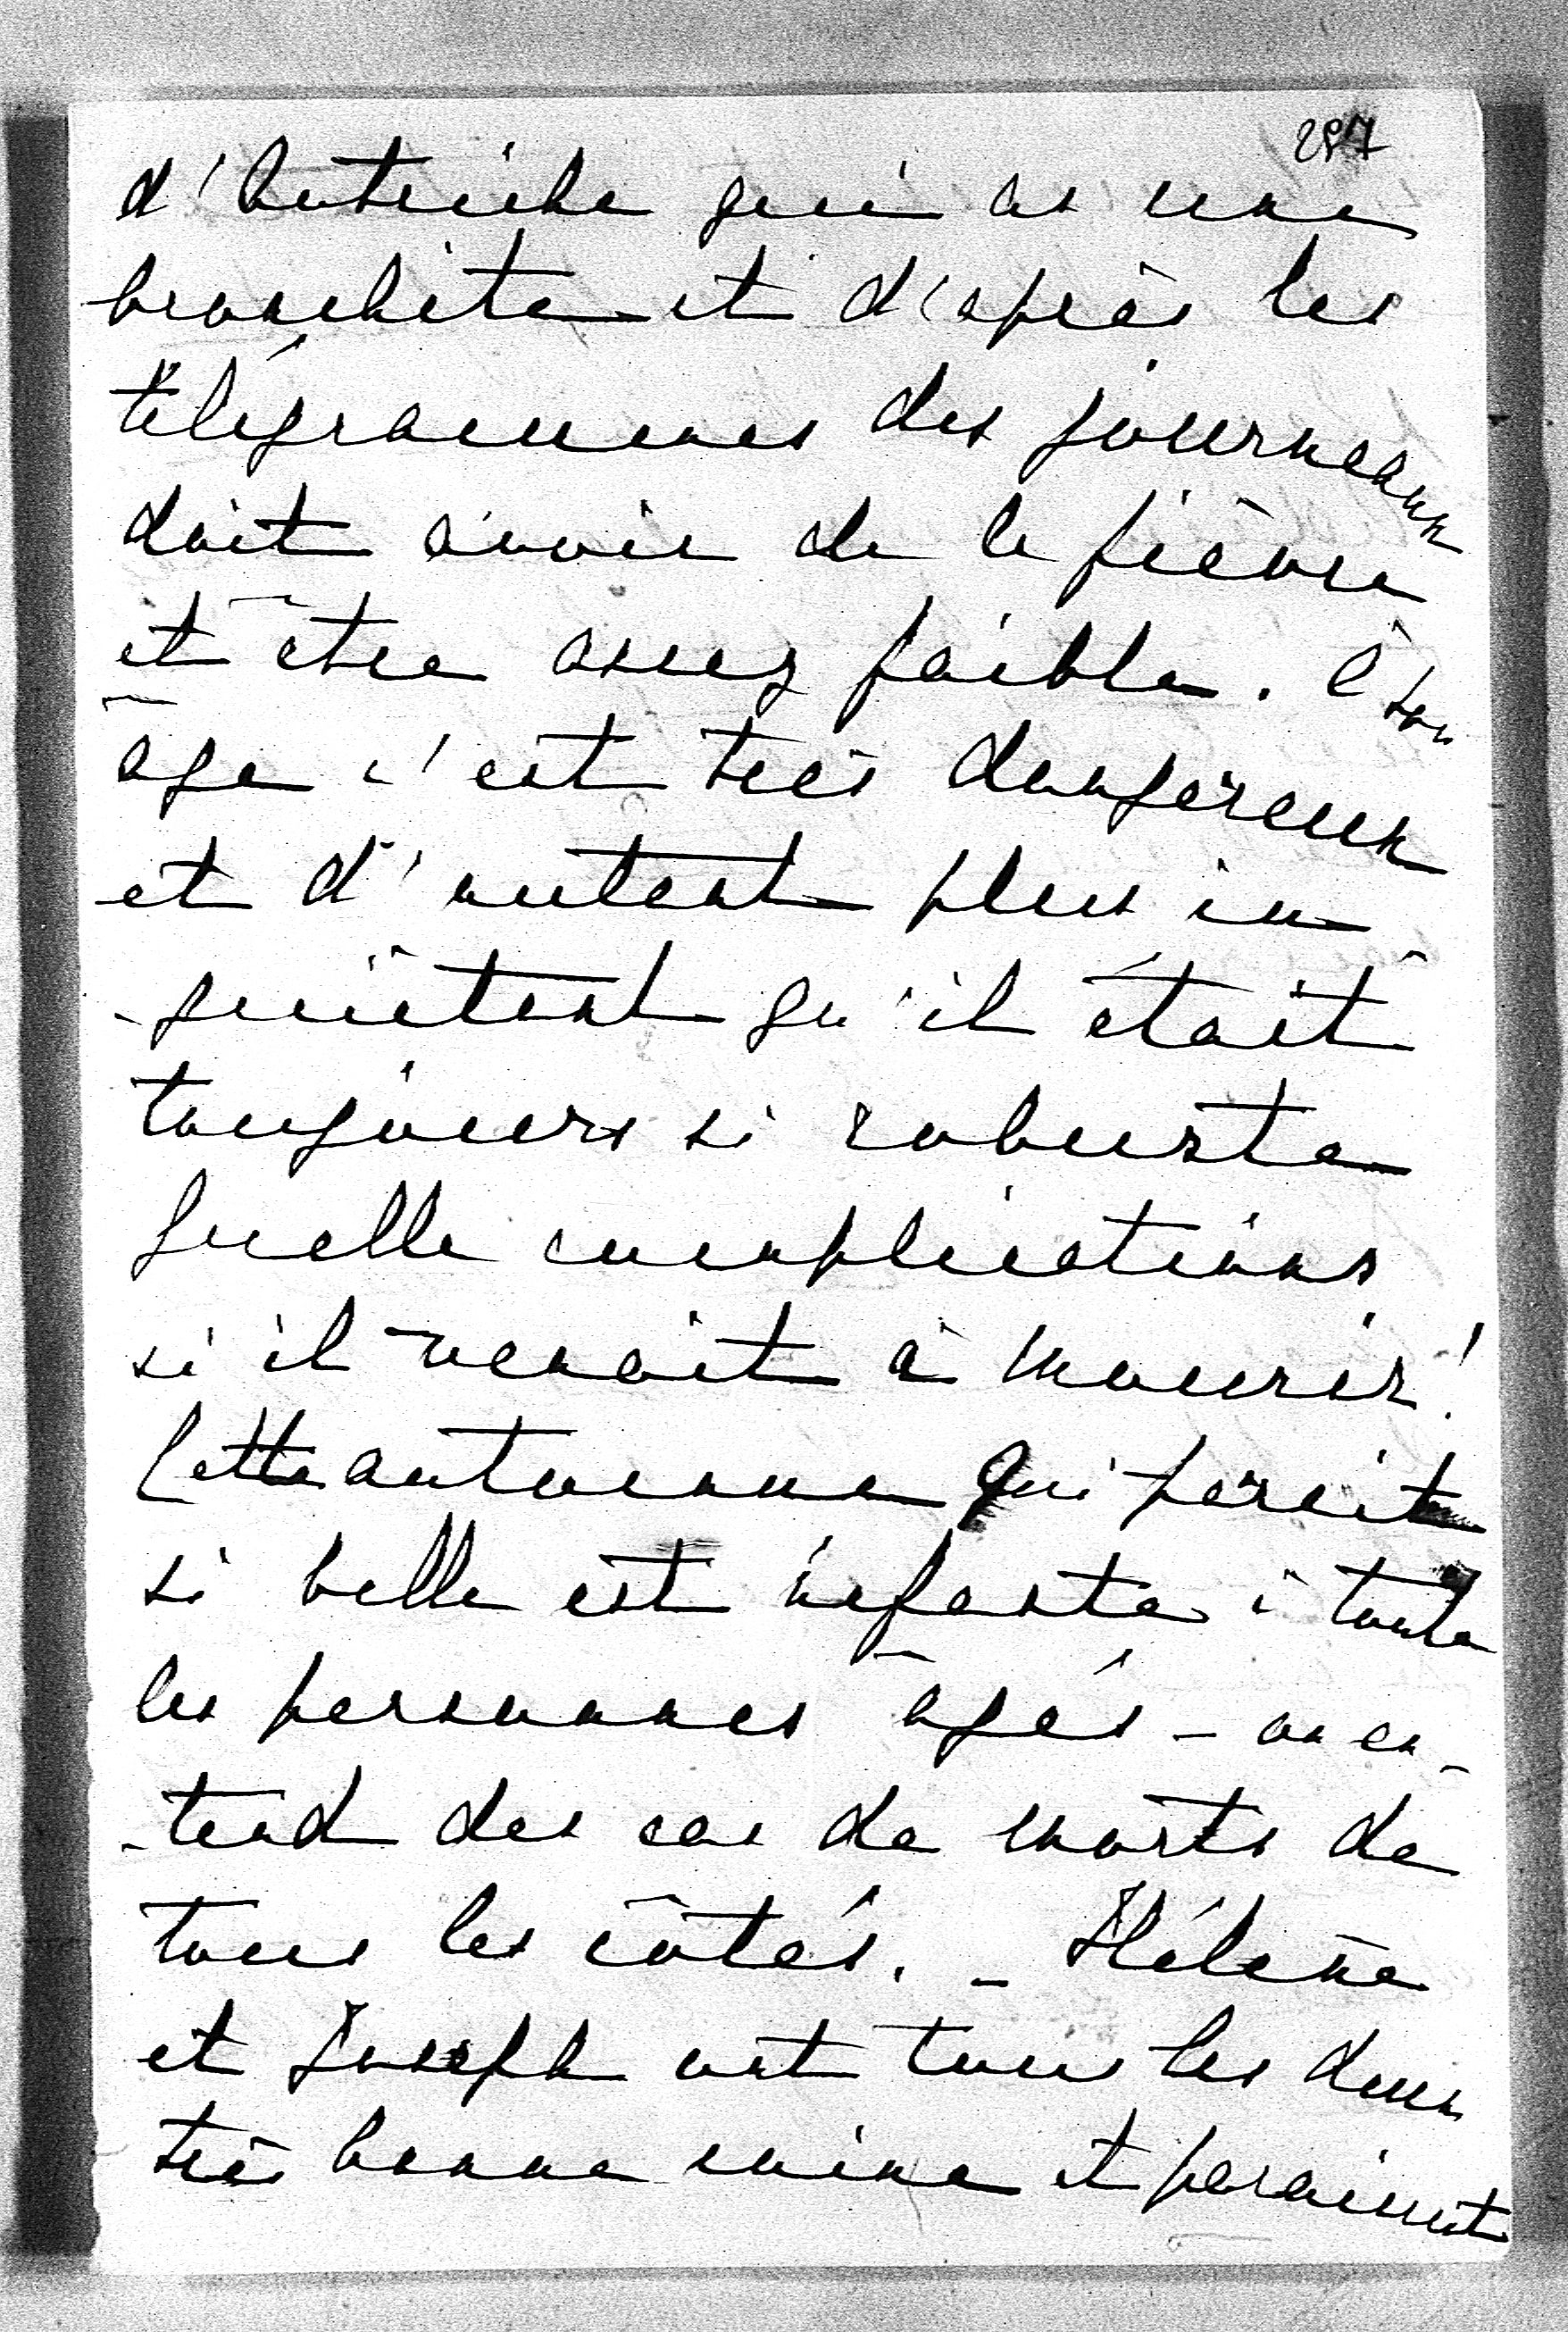 287
d'Autriche qui as une
bronchite et d'après les
télégrammes des journeaux
doit avoir de la fièvre
et être assez faible. à son
âge c'est très dangereux
et d'autant plus in
-quiètant qu'il était
toujours si robuste
quelle complications
si il venait à mourir!
Cette automne qui parait
si belle est néfaste à toute
les personnes âgés - on en-
-tend des cas de morts de
tous les côtés. - Hélène
et Joseph ont tous les deux
très bonne mine et paraissent